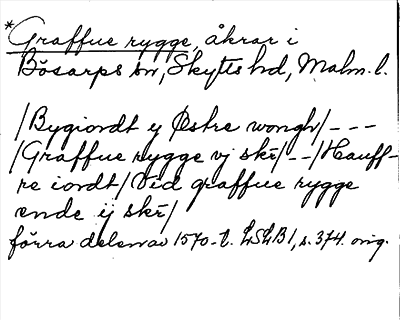 *Graffue rygge, åkrar i
Bösarps sn, Skytts hd, Malm. l.
/Bygiordt ij Østre wongh/---
/Graffue rygge vj skr/--/Hauff-
re iordt/Vid graffue rygge
ende ij skr/
förra delen av 1570-t. LSLB1, s. 374. orig.